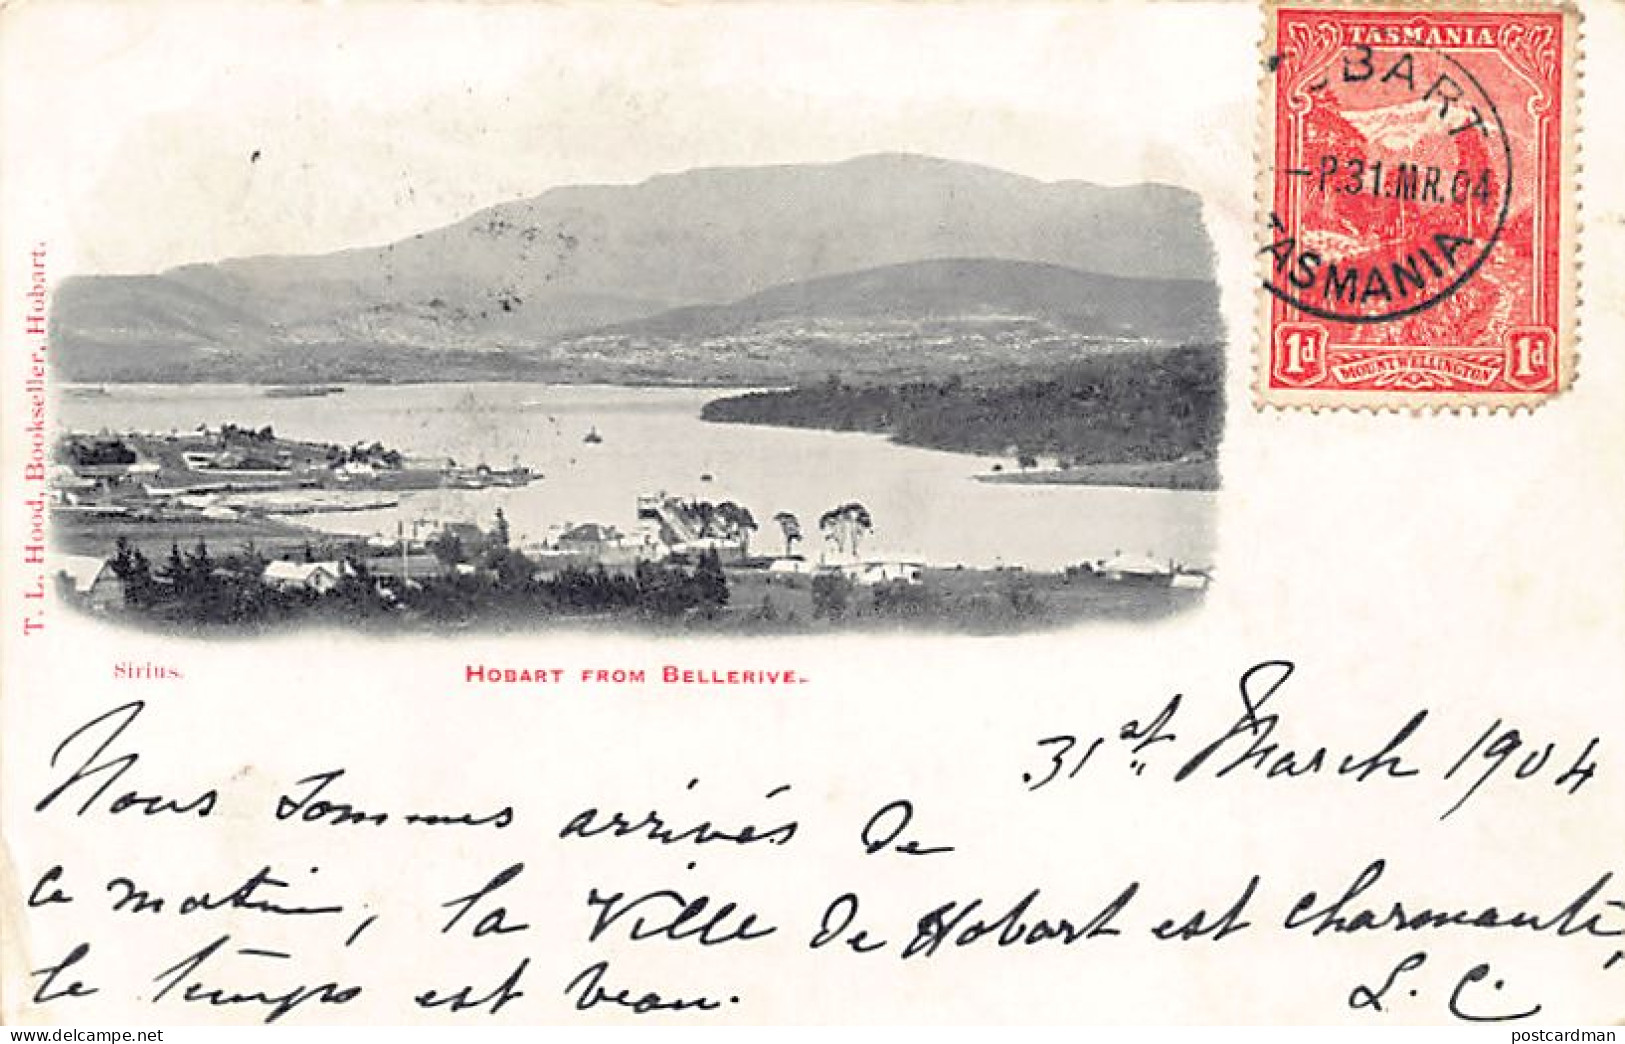 TASMANIA
HOBART
-P.31.MR.04
TASMANIA
1d MOUNT WELLINGTON 1d
T. L. Hood, Bookseller, Hobart.
Sirius.
HOBART FROM BELLERIVE.
31st March 1904
Nous sommes arrivés de
ce matin, la Ville de Hobart est charmante,
le temps est beau.
L. C.
postcardman
delcampe.net